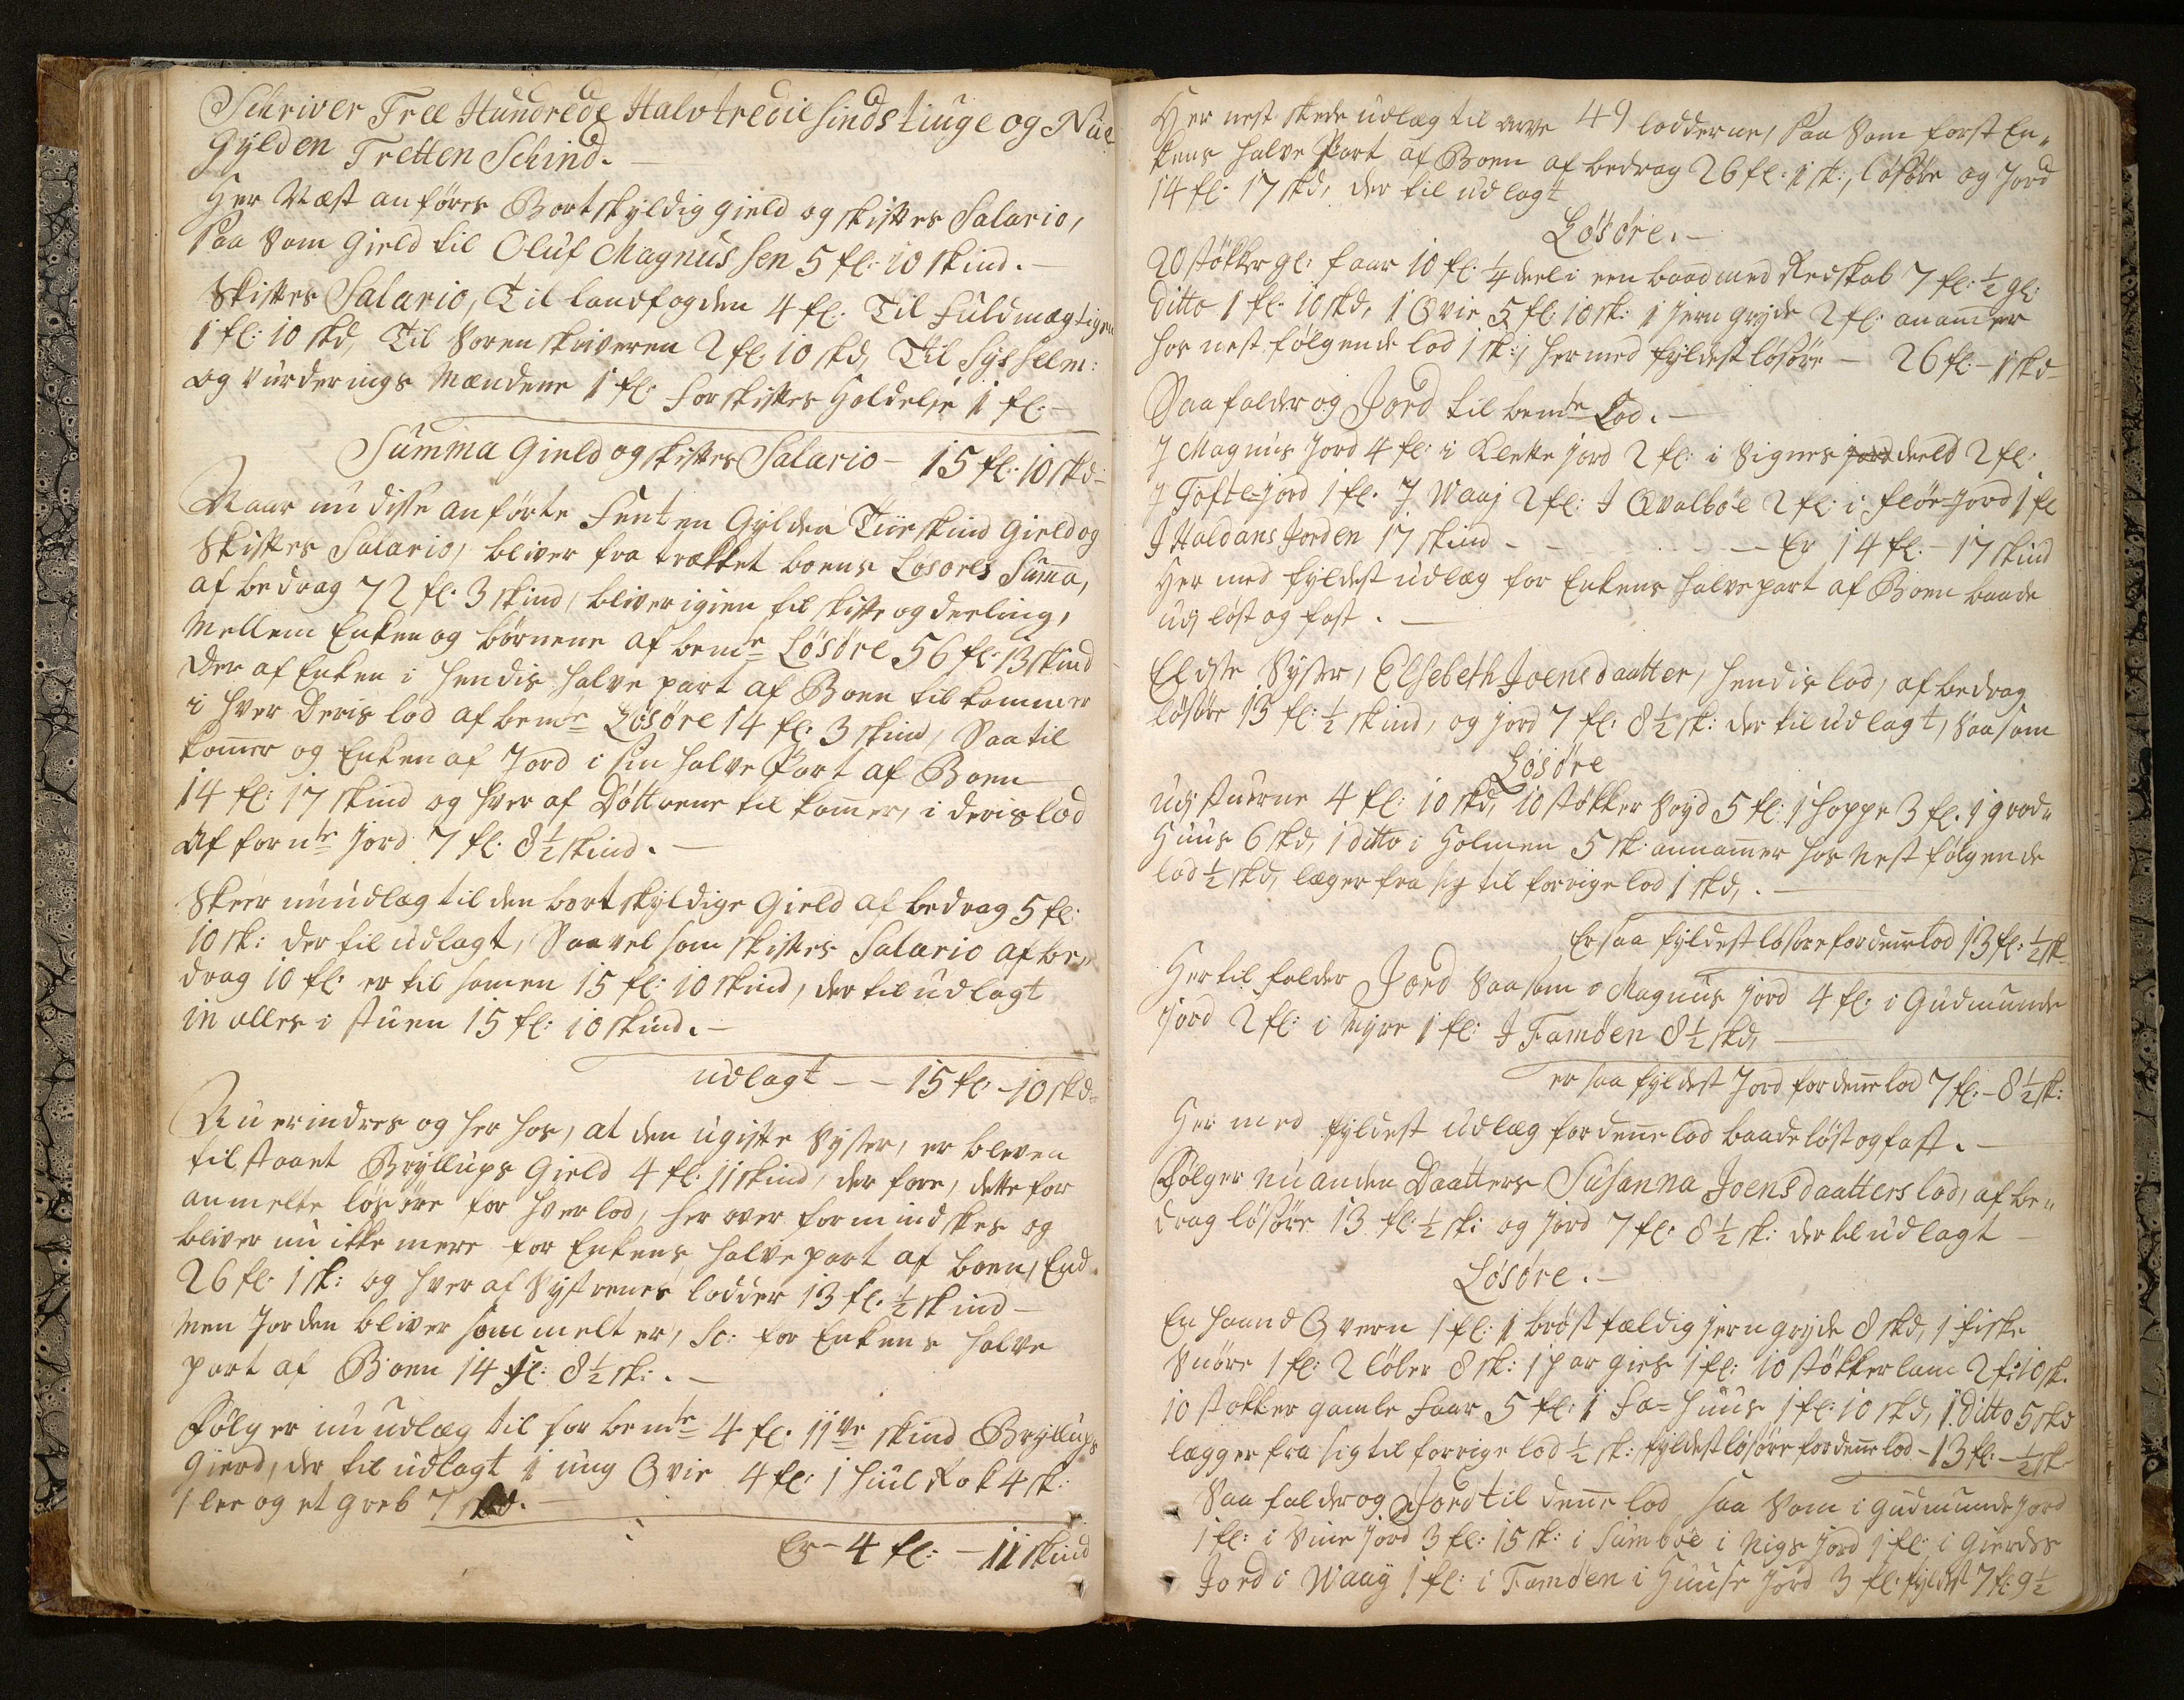 Schriver Tree Hundrede Halvtredie Sindstiuge og Nie
Gylden Tretten Schind. —
Her Næst anføres Bortskyldig gield og skiftes Salario,
Saa Som gield til Oluf Magnussen 5 fl: 10 skind. —
Skiftes Salario, Til landfogden 4 fl: Til fuldmægtigen
1 fl: 10 skd, Til Sorenskriveren 2 fl: 10 skd, Til Sysselm:
og Vurderings Mændene 1 fl: for skiftes Holdelse 1 fl: —
Summa Gield og skiftes Salario — 15 fl: 10 skd —
Naar nu disse anførte Femten Gylden Tiie skind gield og
Skiftes Salario, bliver fra trækket boens Løsøres Suma,
af bedrag 72 fl: 3 skind, bliver igien til skifte og deeling,
Mellem Enken og børnene af bemte Løsøre 56 fl: 13 skind
der af Enken i hendis halve part af Boen til kommer
i hver deris lod af bemte Løsøre 14 fl: 3 skind, Saa til
komer og Enken af Jord i sin halve Part af Boen
14 fl: 17 skind og hver af Døttrene til komer, i deris lod
af fornte jord 7 fl: 8½ skind. —
Skeer nu udlæg til den bortskyldige gield af bedrag 5 fl:
10 sk: der til udlagt, Saavel som skiftes Salario af be„
drag 10 fl: er til samen 15 fl: 10 skind, der til udlagt
in alles i stuen 15 fl: 10 skind. —
udlagt — — 15 fl: — 10 skd =
Nu erindres og her hos, at den ugifte Syster, er bleven
tilstaaet Bryllups Gield 4 fl: 11 skind, der fore, dette for
anmelte løsøre for hver lod, her over formindskes og
bliver nu ikke mere for Enkens halve part af boen, End
26 fl: 1 sk: og hver af Systrenes lodder 13 fl: ½ skind —
Men Jorden bliver som melt er, Sc: for Enkens halve
part af Boen 14 fl: 8½ sk: . —
Følger nu udlæg til for bemte 4 fl: 11ve skind Bryllups
gierd, der til udlagt 1 ung Qvie 4 fl: 1 Huil Rok 4 sk:
1 lee og et greb 7 skd. —
Er — 4 fl: — 11 skind
49
Her nest skede udlæg til arve lodderne, Saa Som først En„
kens halve Part af Boen af bedrag 26 fl: 1 sk:, løsøre og Jord
14 fl: 17 skd, der til udlagt
Løsøre. —
20 støkker gl: faar 10 fl: ¼ deel i een baad med Redskab 7 fl: ½ gl:
ditto 1 fl: 10 skd, 1 Qvie 5 fl: 10 sk: 1 jern gryde 2 fl: anamer
hos nest følgende lod 1 sk:, her med fyldest løsøre — 26 fl: — 1 skd —
Saa falder og Jord til bemte Lod. —
J Magnus Jord 4 fl: i Klette jord 2 fl: i Signes jord deeld 2 fl:
J Tofte-jord 1 fl. J Waaj 2 fl: J Qvalbøe 2 fl: i fløe-Jord 1 fl
J Haldans Jorden 17 skind — — Er 14 fl: — 17 skind
Her med fyldest udlæg for Enkens halve part af Boen baade
udj løst og fast. —
Eldste Syster, Elsebeth Joensdaatter, hendis lod, af bedrag
løsøre 13 fl: ½ skind, og jord 7 fl: 8½ sk: der til udlagt, Saa som
Løsøre
udj stuerne 4 fl: 10 skd, 10 støkker Søyd 5 fl: 1 hoppe 3 fl. 1 grod„
Huus 6 skd, 1 ditto i Holmen 5 sk: annamer hos Nest følgende
lod ½ skd, læger fra sig til forrige lod 1 skd, . —
Er saa fyldest løsøre for denne lod 13 fl: ½ sk
Her til falder Jord Saa som i Magnus jord 4 fl: i Gudmunde
jord 2 fl: i Myre 1 fl: J Famøen 8½ skd, —
er saa fyldest Jord for denne lod 7 fl: — 8½ sk:
Her med fyldest udlæg for denne lod baade løst og fast. —
Følger nu anden Daatters Susanna Joensdaatters lod, af be„
drag løsøre 13 fl: ½ sk: og jord 7 fl: 8½ sk: der til udlagt —
Løsøre. —
En haand Qvern 1 fl: 1 brøst fældig jern gryde 8 skd, 1 fiske
Snøre 1 fl: 2 løber 8 sk: 1 par gies 1 fl: 10 støkker lam 2 fl: 10 sk.
10 støkker gamle faar 5 fl: 1 Fæ=huus 1 fl: 10 skd, 1 ditto 5 skd
lægger fra sig til forrige lod ½ sk: fyldest løsøre for denne lod — 13 fl: — ½ sk
Saa falder og Jord til denne lod Saa Som i Gudmunde Jord
1 fl: i Snie jord 3 fl: 15 sk: i Sumbøe i Nigs jord 1 fl: i Gierdes
Jord i Waaÿ 1 fl: i Famøen i Huuse Jord 3 fl: fyldest 7 fl: 9½